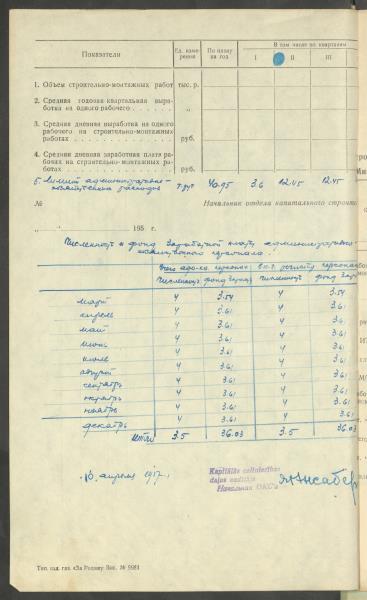 Показатели
Ед. изме-
рения
По плану
на год
В том числе по кварталам
I II III
1. Объем строительно-монтажных работ тыс. р.
2. Средняя годовая-квартальная выра-
ботка на одного рабочего . . . . . „
3. Средняя дневная выработка на одного
рабочего на строительно-монтажных
работах . . . . . . . . руб.
4. Средняя дневная заработная плата ра-
бочих на строительно-монтажных ра-
ботах . . . . . . . . руб.
5. Лимит административно-
хозяйственных расходов т.руб 40.95 3.6 12.45 12.45
№ Начальник отдела капитального строит
„ “ 195 г.
Численность и фонд заработной платы административно-
хозяйственного персонала.
Всего адм-хоз. персонал в т.ч.
численность фонд зарпл численность фонд зар
март 4 3.54 4 3.54
апрель 4 3.61 4 3.61
май 4 3.61 4 3.61
июнь 4 3.61 4 3.61
июль 4 3.61 4 3.61
август 4 3.61 4 3.61
сентябрь 4 3.61 4 3.61
октябрь 4 3.61 4 3.61
ноябрь 4 3.61 4 3.61
декабрь 4 3.61 4 3.61
Итого 3.5 36.03 3.5 36.03
апреля
Kapitālās celtniecības
daļas vadītājs
Начальник ОКС'а
Тип. изд. газ. «За Родину» Зак. № 9981